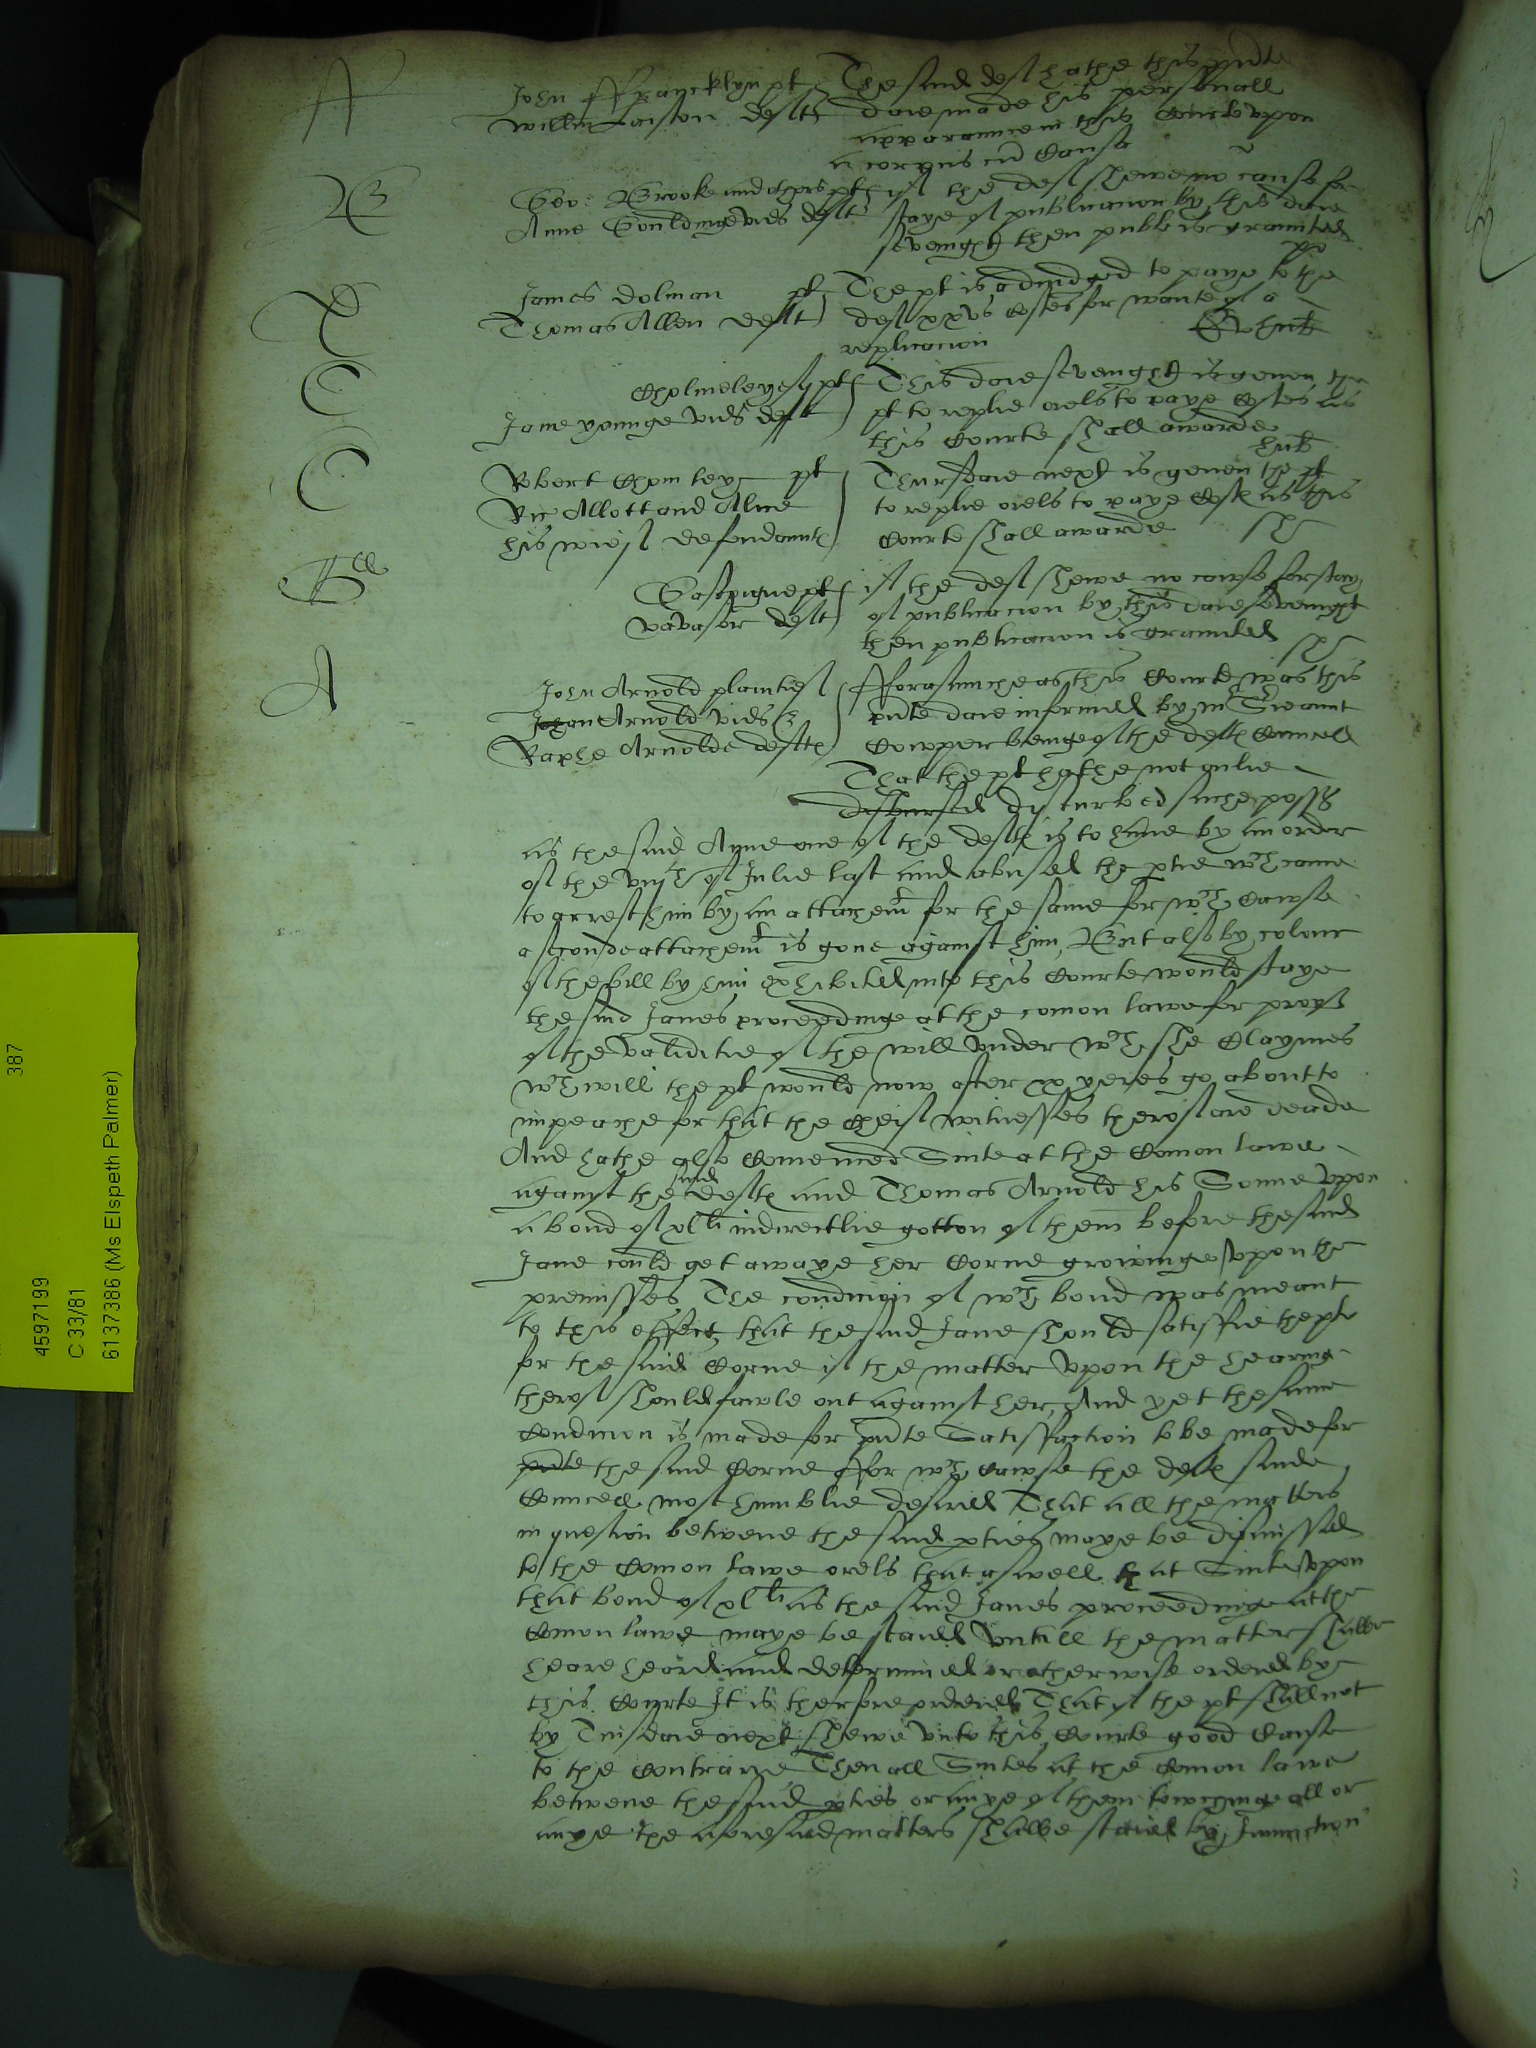 A
John Ffrancklyn pt
Willm ... deft
The said def hathe this pnte
daie made his personall
apparaunce in this Courte upon
a corpus cu Causa
B
Geo: Brooke and others pts
Anne Gouldinge vid deft
if the def shewe no cause for
staye of publicacion by this daie
sevenight then publi is graunted
D
James Dolman pt
Thomas Allen deft
The pt is adiudged to paye to the
def xxvs Costes for wante of a
replicacion
C
Cholmeley pt
Jane younge vid deft
This daie sevenight is geven the
pt to replie orels to paye Costes as
this Courte shall awarde
C
Robert Chomley pt
Ric Allott and Alice
his wief defendauntes
Thursdaie next is geven the pt
to replie orels to paye Costes as this
Courte shall awarde
G
Gascoigne pt
vavasor deft
if the def shewe no cawse for stay
of publicacion by this daie sevenight
then publicacion is graunted
A
John Arnold plaintief
Arnold vid &
Raphe Arnolde deftes
Fforasmuche as this Courte was this
pnte daie informed by mr Serieaunt
Cowper beinge of the deftes Councell
That the pt hathe not onlie
disbursed disturbed suche poss
as the said Anne one of the deftes is to have by an order
of the viijth of Julie last and abused the ptie wch came
to arrest him by an attachemt for the same for wch Cawse
a seconde attachemt is gone against him, But also by colour
of the bill by him exhibited into this Courte would staye
the said Janes proceedinge at the comon lawe for proof
of the validitie of the will vnder wch she Claymes
wch will the pt would now after xx yeres go about to
impeache for that the Cheif witnesses therof are deade
And hathe also Comenced Suite at the Comon lawe
against the said deftes and Thomas Arnold his Sonne vpon
a bond of xlli indirectlie gotten of them before the said
Jane could get awaye her Corne growinge vpon the
premisses, The condicion of wch bond was meant
to this effect, that the said Jane should satisfie the pt
for the said Corne if the matter vpon the hearing
therof should fawle out against her, And yet the same
Condicion is made for pnte Satisfaction to be made for
pnte the said Corne ffor wch cawse the deftes saide
Councell most humblie desired That all the matters
in question betwene the said pties maye be dismissed
to the Comon lawe orels that aswell that Suite vpon
that bond of xlli as the said Janes proceedinge at the
Comon lawe maye be staied vntill the matter shalbe
heare heard and determined or otherwise ordered by
this Courte It is therfore ordered That if the pt shall not
by Tuisdaie next shewe vnto this Courte good Cause
to the Contrarie Then all Suites at the Comon lawe
betwene the said pties or anye of them towching all or
anye the aforesaid matters shalbe staied by Iniunction
387
4597199
C 33/81
6137386 (Ms Elspeth Palmer)